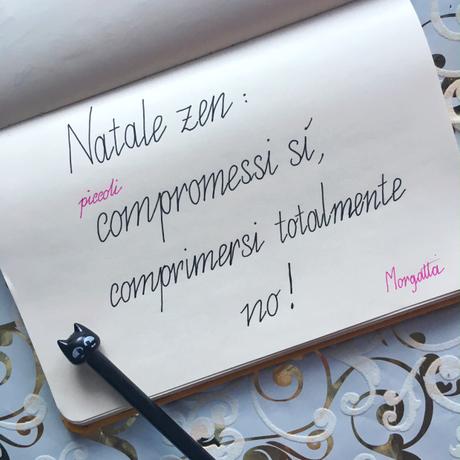 Natale zen:
piccoli
compromessi sí,
comprimersi totalmente
no!
Morgatta